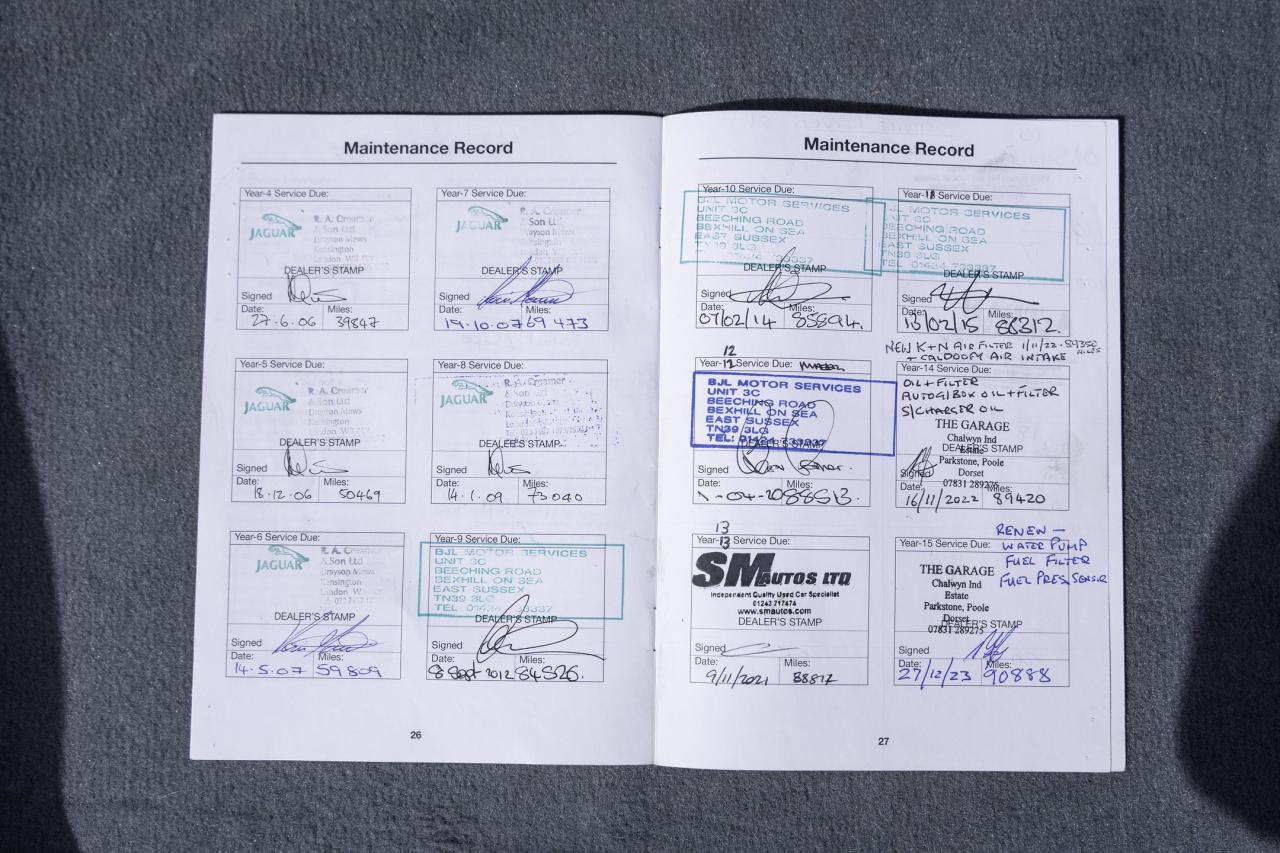 Maintenance Record
Year-4 Service Due:
JAGUAR
R. A. Creamer
& Son Ltd
Drayson Mews
Kensington
London
DEALER'S STAMP
Signed
Date: Miles:
27.6.06 39847
Year-7 Service Due:
JAGUAR
& Son Ltd
DEALER'S STAMP
Signed
Date: Miles:
19.10.07 69 473
Year-5 Service Due:
JAGUAR
R. A. Creamer
& Son Ltd
Drayson Mews
Kensington
London
DEALER'S STAMP
Signed
Date: Miles:
18.12.06 50469
Year-8 Service Due:
JAGUAR
R. A. Creamer
& Son Ltd
DEALER'S STAMP
Signed
Date: Miles:
14.1.09 73040
Year-6 Service Due:
JAGUAR
& Son Ltd
Drayson Mews
Kensington
London
DEALER'S STAMP
Signed
Date: Miles:
14.5.07 59809
Year-9 Service Due:
BJL MOTOR SERVICES
UNIT 3C
BEECHING ROAD
BEXHILL ON SEA
EAST SUSSEX
TN39 3LG
TEL 01424 733337
DEALER'S STAMP
Signed
Date: Miles:
8 Sept 2012 84526.
26
Maintenance Record
Year-10 Service Due:
BJL MOTOR SERVICES
UNIT 3C
BEECHING ROAD
BEXHILL ON SEA
EAST SUSSEX
TN39 3LG
DEALER'S STAMP
Signed
Date: Miles:
07/02/14 85894.
Year-11 Service Due:
BJL MOTOR SERVICES
UNIT 3C
BEECHING ROAD
BEXHILL ON SEA
EAST SUSSEX
TN39 3LG
TEL 01424 733337
DEALER'S STAMP
Signed
Date: Miles:
13/02/15 88312.
NEW K+N AIR FILTER 1/11/22 - 89350 MILES
AIR INTAKE
12
Year-12 Service Due:
BJL MOTOR SERVICES
UNIT 3C
BEECHING ROAD
BEXHILL ON SEA
EAST SUSSEX
TN39 3LG
TEL: 01424 733337
DEALER'S STAMP
Signed
88513.
Year-14 Service Due:
OIL + FILTER
AUTO G/BOX OIL + FILTER
S/CHARGER OIL
THE GARAGE
Chalwyn Ind
DEALER'S STAMP
Estate
Parkstone, Poole
Signed
Dorset
07831 289275
Date: Miles:
16/11/2022 89420
13
Year-13 Service Due:
SM AUTOS LTD
Independent Quality Used Car Specialist
01243 717474
www.smautos.com
DEALER'S STAMP
Signed
Date: Miles:
9/11/2021 88817
RENEW —
Year-15 Service Due:
WATER PUMP
FUEL FILTER
FUEL PRES SENSOR
THE GARAGE
Chalwyn Ind
Estate
Parkstone, Poole
Dorset
DEALER'S STAMP
07831 289275
Signed
Date: Miles:
27/12/23 90888
27